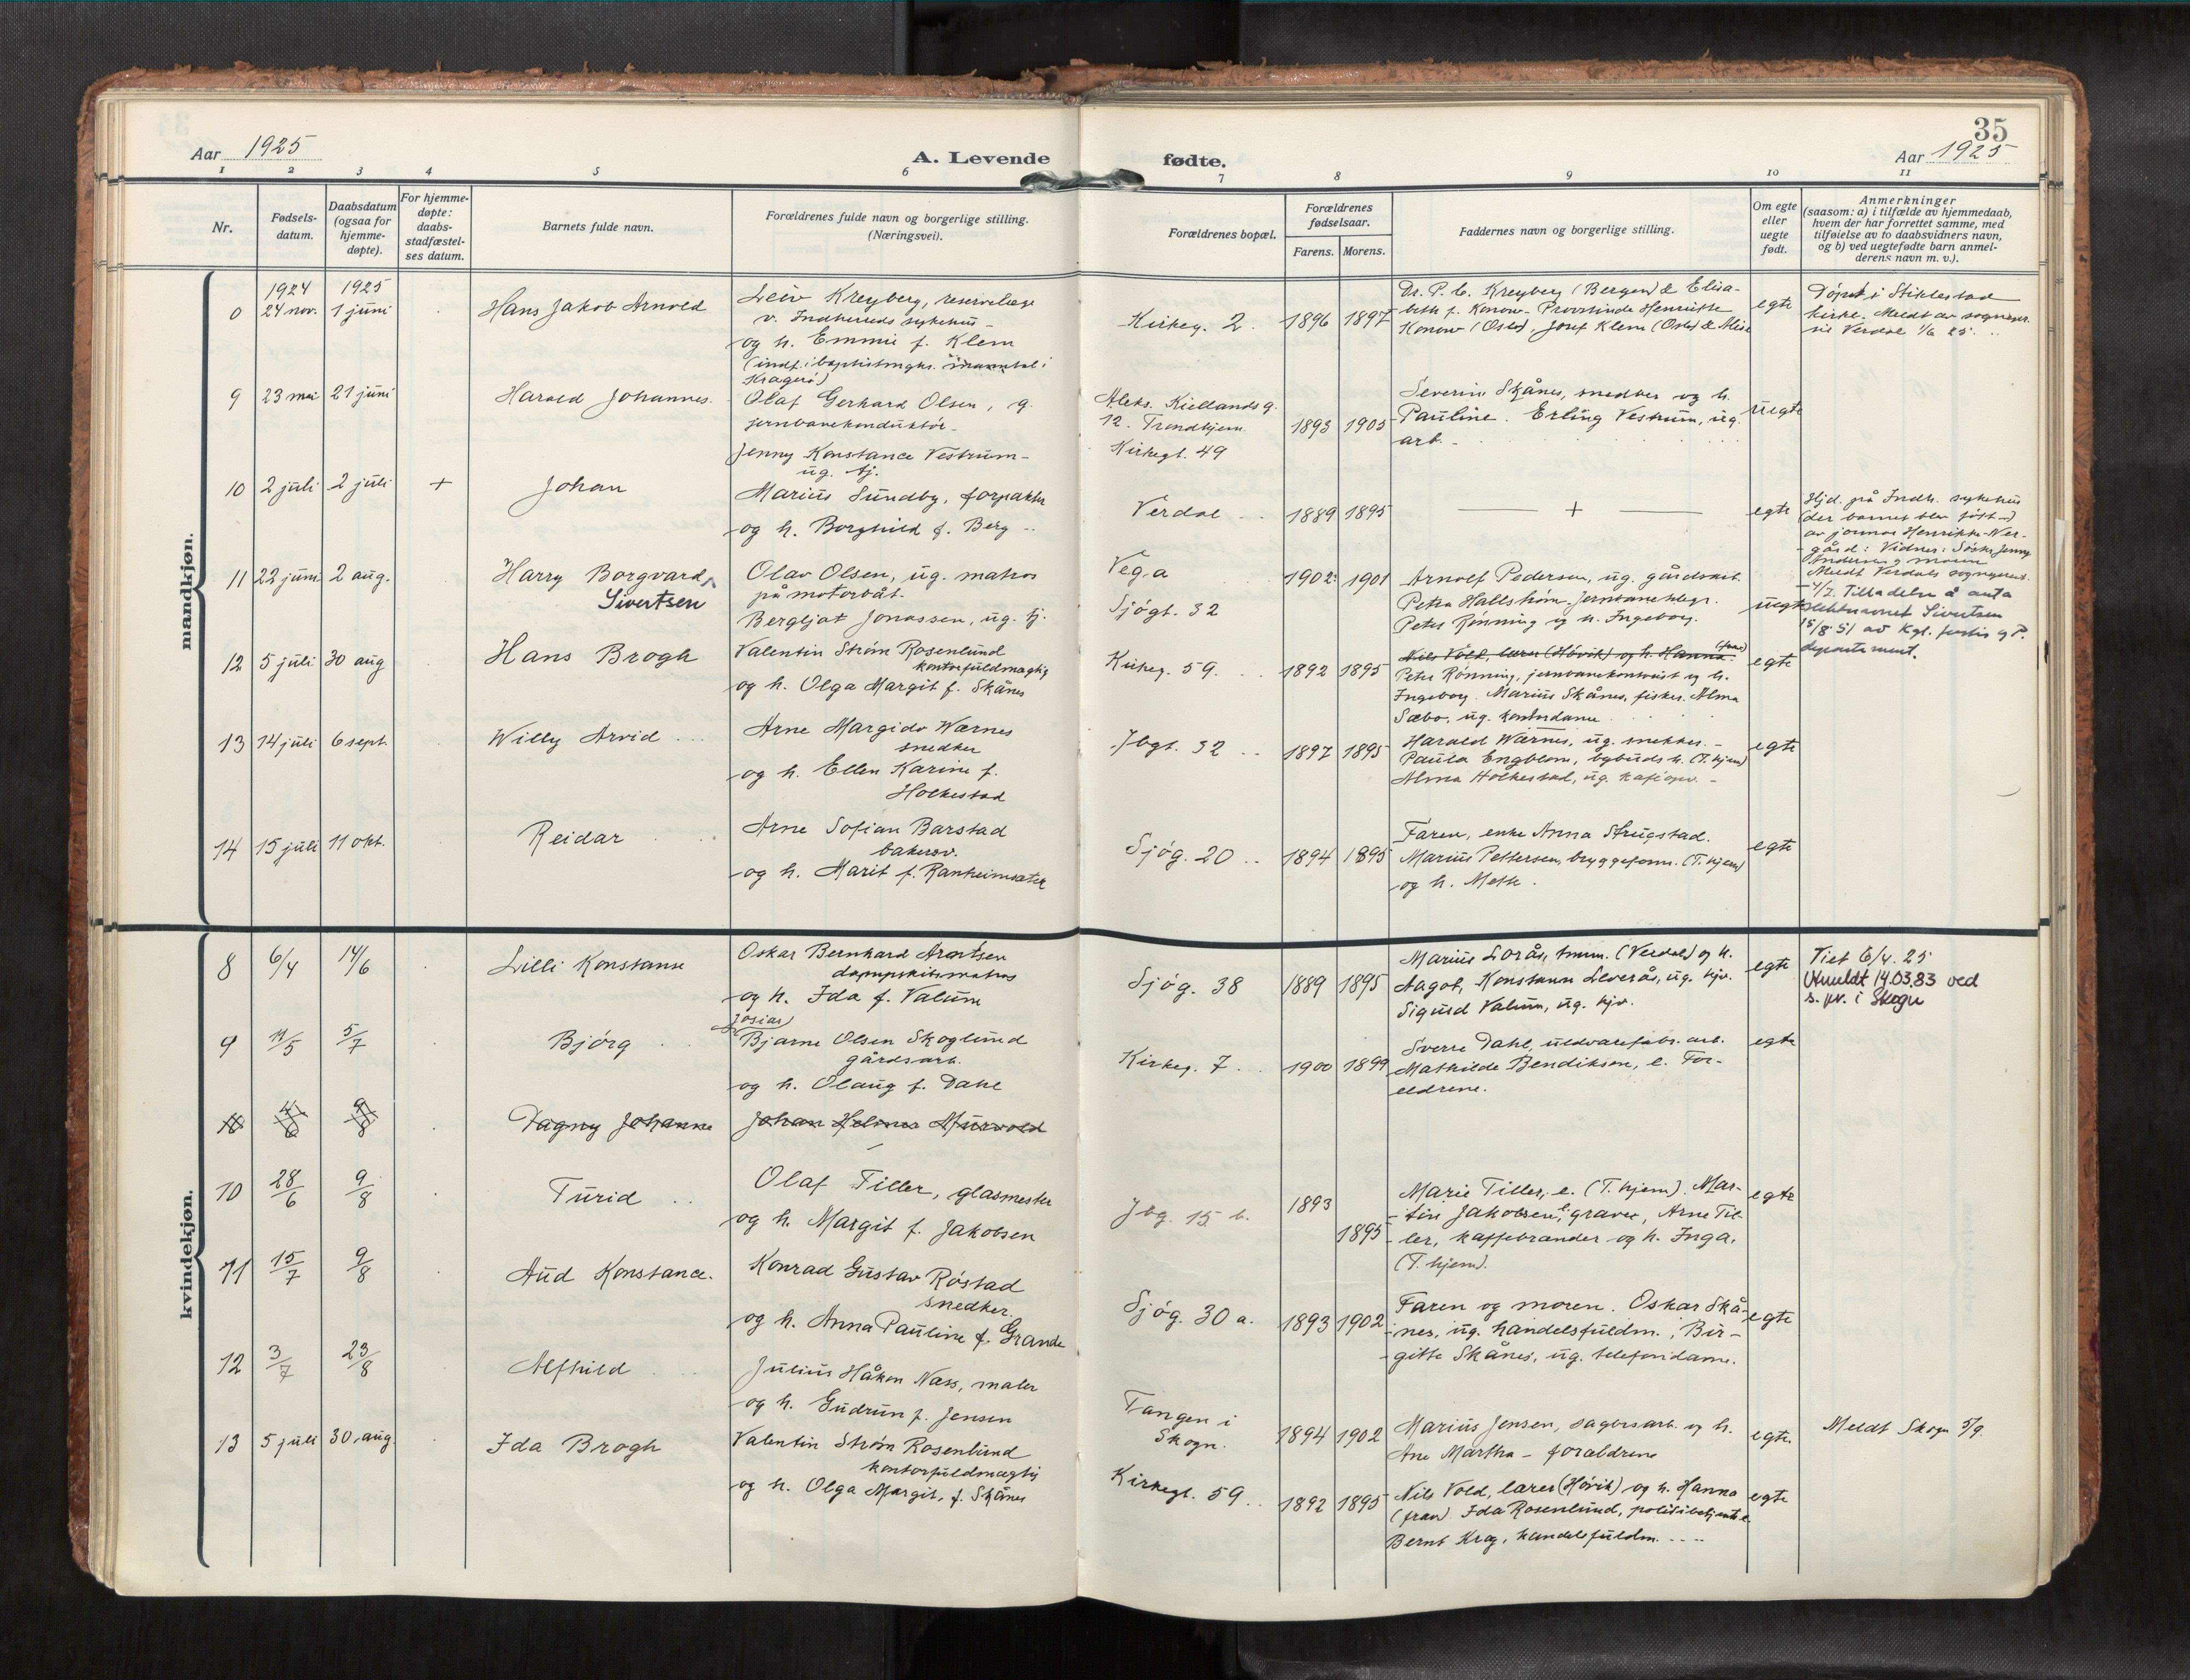 35
Aar 1925
A. Levende
fødte.
Aar 1925
1 2 3 4 5 6 7 8 9 10 11
Nr.
Fødsels-
datum.
Daabsdatum
(ogsaa for
hjemme-
døpte).
For hjemme-
døpte:
daabs-
stadfæstel-
ses datum.
Barnets fulde navn.
Forældrenes fulde navn og borgerlige stilling.
(Næringsvei).
Forældrenes bopæl.
Forældrenes
fødselsaar.
Farens. Morens.
Faddernes navn og borgerlige stilling.
Om egte
eller
uegte
født.
Anmerkninger
(saasom: a) i tilfælde av hjemmedaab,
hvem der har forrettet samme, med
tilføielse av to daabsvidners navn,
og b) ved uegtefødte barn anmel-
derens navn m. v.).
mandkjøn.
0
1924
24 nov.
1925
1 juni
Hans Jakob Arnold
Leiv Kreyberg, reservelæge
v. Indherreds sykehus -
og h. Emmie f. Klem
(indf. i baptistmgks. manntal i
Kragerø)
Kirkeg. 2.
1896 1897
Dr. P. C. Kreyberg (Bergen) & Elisa-
beth f. Konow - Provstinde Henriette
Konow (Oslo), Josef Klem (Oslo) &
egte
Døpt i Stiklestad
kirke. Meldt av sogneprs.
til Verdal 1/6 25.
9
23 mai
21 juni
Harald Johannes.
Olaf Gerhard Olsen, g.
jernbanekonduktør -
Jenny Konstance Vestrum -
ug. tj.
Aleks. Kiellands g.
12. Trondhjem.
Kirkegt. 49
1893 1905
Severin Skånes, snedker og h.
Pauline. Erling Vestrum, ug.
arb. -
uegte
10
2 juli
2 juli
+
Johan
Marius Sundby, forpakter
og h. Borghild f. Berg
Verdal
1889 1895
+
egte
Hjd. på Indh. sykehus
(der barnet blev født -)
av jormor Henrikke Ner-
gård: Vidner: Søster Jenny
Andersen og moren
Meldt Verdals sogneprest.
4/7.
11
22 juni
2 aug.
Harry Borgvard
Sivertsen
Olav Olsen, ug. matros
på motorbåt.
Bergljot Jonassen, ug. tj.
Vega
Sjøgt. 32
1902 1901
Arnolf Pedersen, ug. gårdsarb.
Petra Hallstrøm,
Peter Rønning og h. Ingeborg.
uegte
Tilladelse å anta
slektsnavnet Sivertsen
15/8 51 av Kgl. justis og P.
departement.
12
5 juli
30 aug
Hans Brogh
Valentin Strøm Rosenlund
kontorfuldmægtig
og h. Olga Margit f. Skånes
Kirkeg. 59.
1892 1895
Nils Vold, lærer (Høvik) og h. Hanna (frav)
Peter Rønning, jernbanekontorist og h.
Ingeborg. Marius Skånes, fisker. Alma
Sæbo, ug. kontordame
egte
13
14 juli
6 sept.
Willy Arvid
Arne Margido Wærnes
snedker
og h. Ellen Karine f.
Holkestad
Jbgt. 32
1897 1895
Harald Wærnes, ug. snekker. -
Paula Engblom, bybuds h. (T.hjem)
Alma Holkestad, ug. kafeopv. -
egte
14
15 juli
11 okt.
Reidar
Arne Sofian Barstad
bakersv.
og h. Marit f. Ranheimsæter
Sjøg. 20
1894 1895
Faren, enke Anna Strugstad.
Marius Pettersen, bryggeform. (T.hjem)
og h. Meth.
egte
kvindekjøn.
8
6/4
14/6
Lilli Konstanse
Oskar Bernhard Arntsen
dampskibsmatros
og h. Ida f. Valum
Sjøg. 38
1889 1895
Marius Lorås, tmm. (Verdal) og h.
Aagot, Konstanse Leverås, ug. hjv.
Sigurd Valum, ug. hjv.
egte
Viet 6/4. 25
Utmeldt 14.03.83 ved
s. pr. i Skogn
9
11/5
5/7
Bjørg
Josias
Bjarne Olsen Skoglund
gårdsarb.
og h. Olaug f. Dahl
Kirkeg. 7
1900 1899
Sverre Dahl, uldvarefabr. arb.
Mathilde Bendiksen, e. For-
eldrene.
egte
10
4/6
9/8
Dagny Johanne
Johan Helmer Murvold
10
28/6
9/8
Turid
Olaf Tiller, glasmester
og h. Margit f. Jakobsen
Jbg. 15 b.
1893
1895
Marie Tiller, e. (T.hjem). Mar-
tin Jakobsen, graver, Arne Til-
ler, kaffebrænder og h. Inga.
(T.hjem).
egte
11
15/7
9/8
Aud Konstance.
Konrad Gustav Røstad
snedker.
og h. Anna Pauline f. Grande
Sjøg. 30 a.
1893 1902
Faren og moren. Oskar Skå-
nes, ug. handelsfuldm., Bir-
gitte Skånes, ug. telefondame.
egte
12
3/7
23/8
Alfhild
Julius Håkon Næss, maler
og h. Gudrun f. Jensen
Tangen i
Skogn.
1894 1902
Marius Jensen, sagbrsarb. og h.
Ane Martha - forældrene
egte
Meldt Skogn 5/9.
13
5 juli
30. aug.
Ida Brogh
Valentin Strøm Rosenlund
kontorfuldmægtig
og h. Olga Margit, f. Skånes
Kirkegt. 59
1892 1895
Nils Vold, lærer (Høvik) og h. Hanna
(frav) Ida Rosenlund,
Bernt Krog, handelsfuldm.
egte